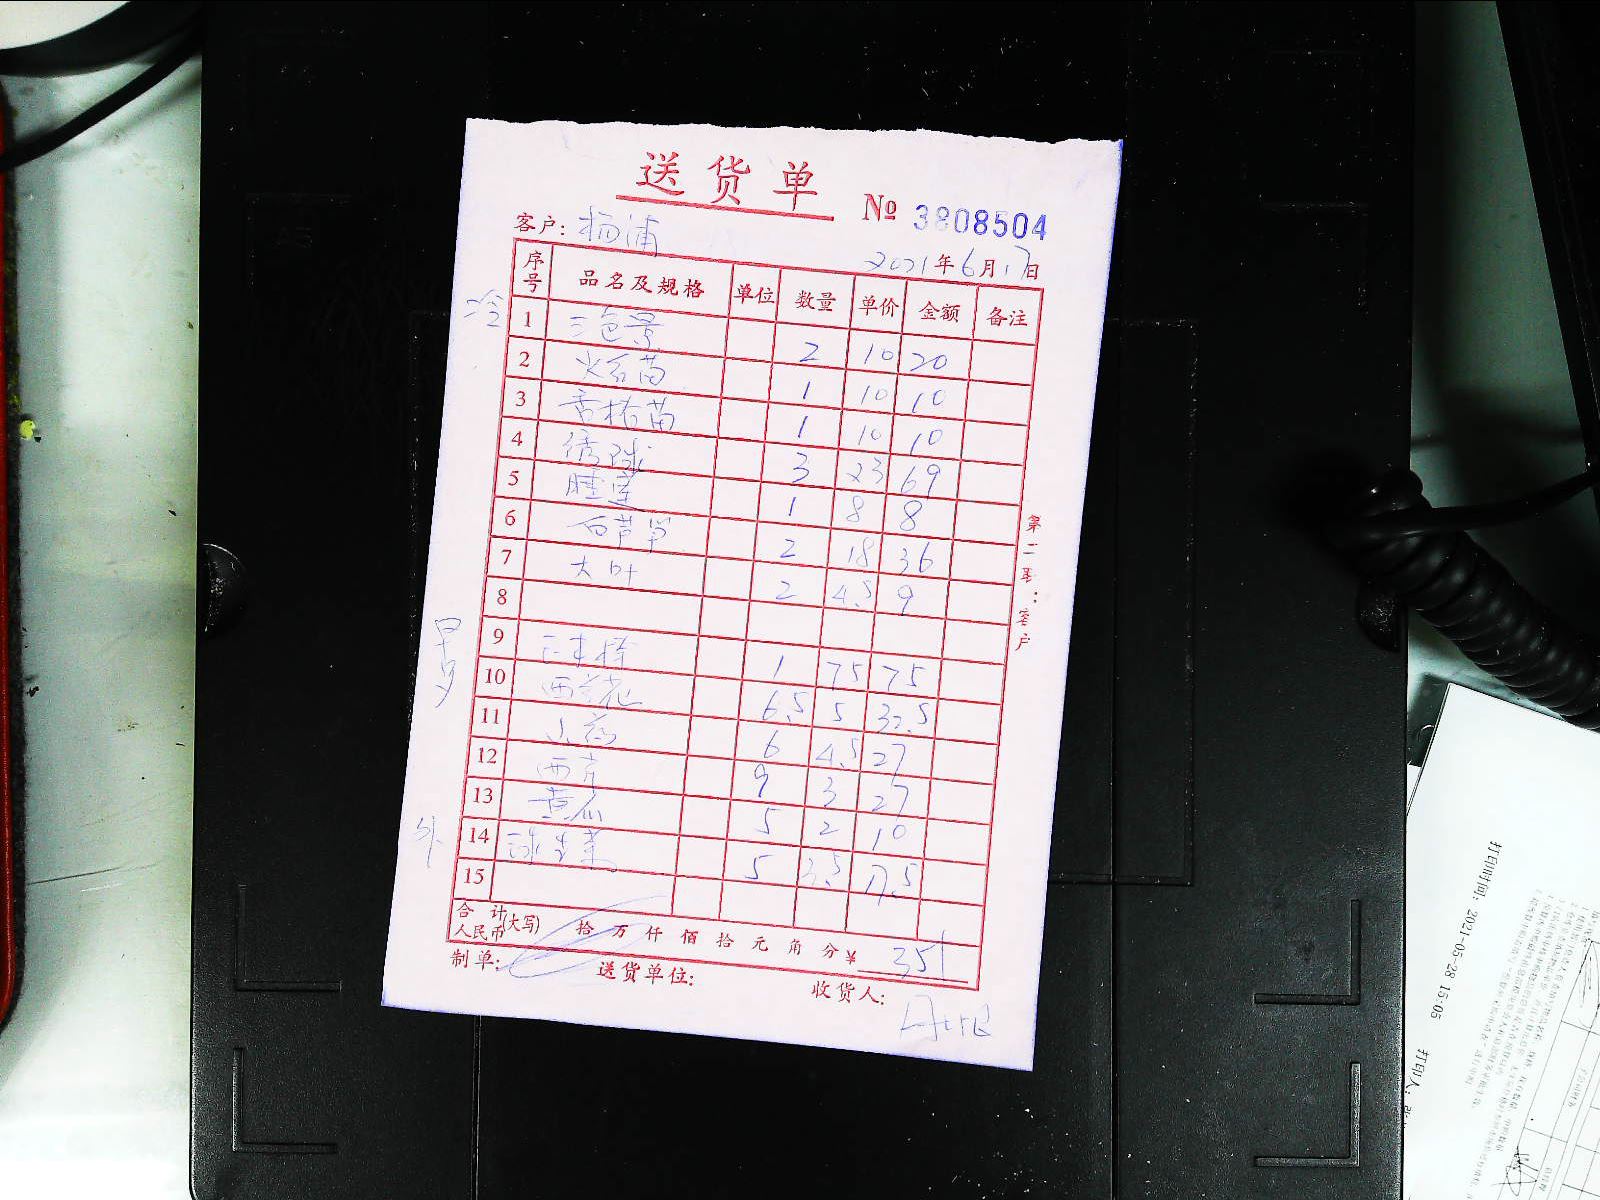 送货单
№ 3808504
客户: 杨浦
2021年6月17日
序号 品名及规格 单位 数量 单价 金额 备注
冷
1 三色景 2 10 20
2 火石苗 1 10 10
3 香椿苗 1 10 10
4 绣球 3 23 69
5 睡莲 1 8 8
6 白芦笋 2 18 36
7 大叶 2 4.5 9
8
9 1 75 75
10 西兰花 6.5 5 32.5
11 山药 6 4.5 27
12 西芹 9 3 27
13 黄瓜 5 2 10
外
14 球生菜 5 3.5 17.5
15
合计人民币(大写) 拾 万 仟 佰 拾 元 角 分 ¥ 351
制单: 送货单位: 收货人:
第二联:客户
打印时间: 2021-05-28 15:05
打印人: